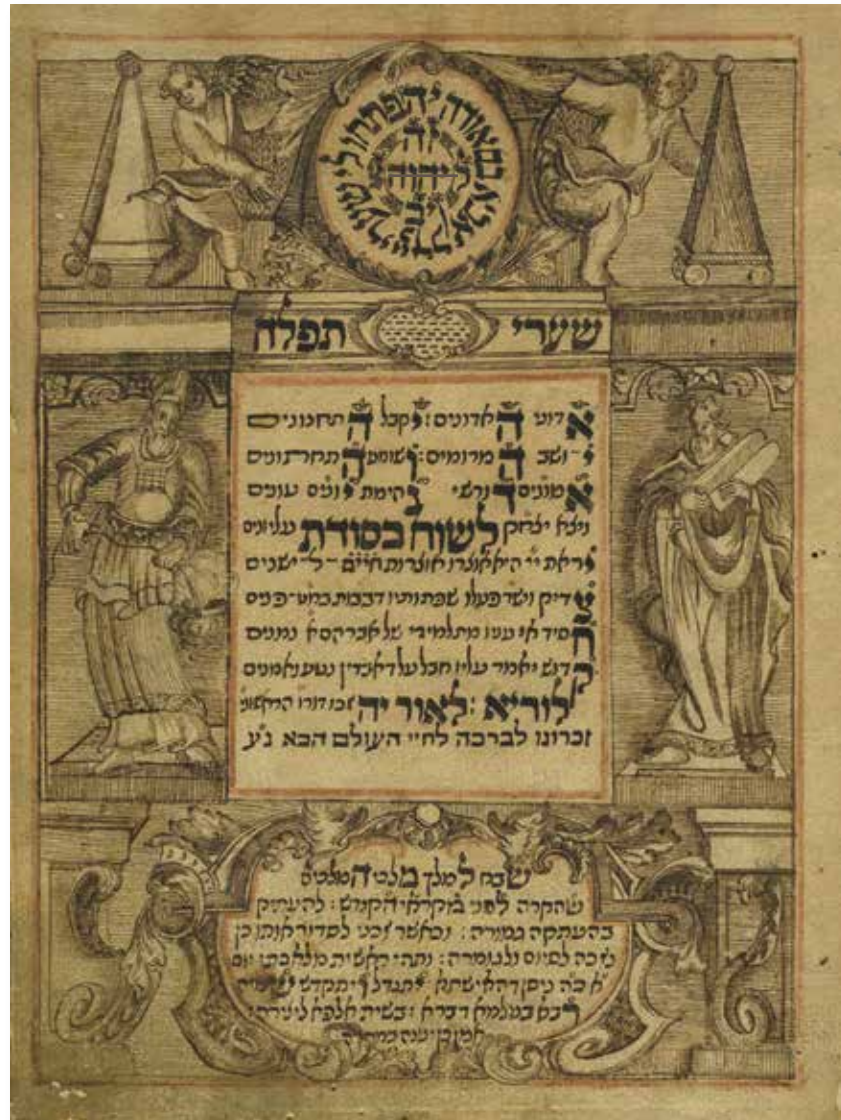 פתחו לי שערי אבא בם אודה יה
זה
ליהוה
שערי תפלה
אדוני האדונים : יקבל התחנונים
יושב המרומים : ושומע התחתונים
אמונים דורשי נהימת יונים עונים
ויצא יצחק לשוח בסודת עליונים
יראת יי היא אוצרו אוצרות חיים לישנים
צדיק וישר פעלו שפתותיו דבבות
חסיד אי עניו מתלמידי של אברהם א נמנים
קדוש יאמר עליו חבל על דאבדין נטע נאמנים
לוריא : לאור יה דורו הראשוני
זכרונו לברכה לחיי העולם הבא נ״ע
שבח למלך מלכי המלכים
שהקרה לפני מקראי הקודש : להעתיק
בהעתקה גמורה : וכאשר זכני לסדור אותו כן
יזכה לסיום ולגומרה : ותהי ראשית מלאכתי יום
א כה ניסן דהאי שתא יתגדל ויתקדש שמיה
רבא בעלמא דברא : בשית אלפא ליצירה :
אמן כן